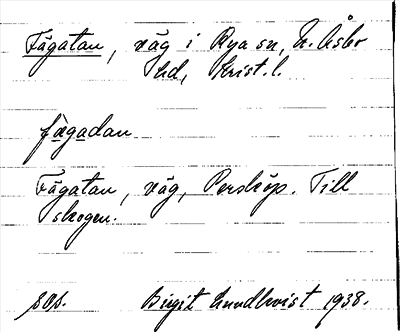 Fägatan, väg i Rya sn, N. Åsbo
hd, Krist. l.
fägadan
Fägatan, väg, Perstorp. Till
skogen.
Birgit Lundkvist 1938.